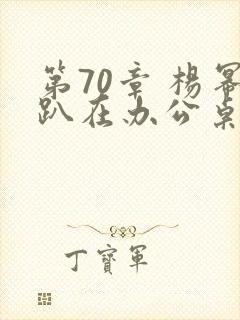 第70章 杨幂
趴在办公桌
丁寶軍